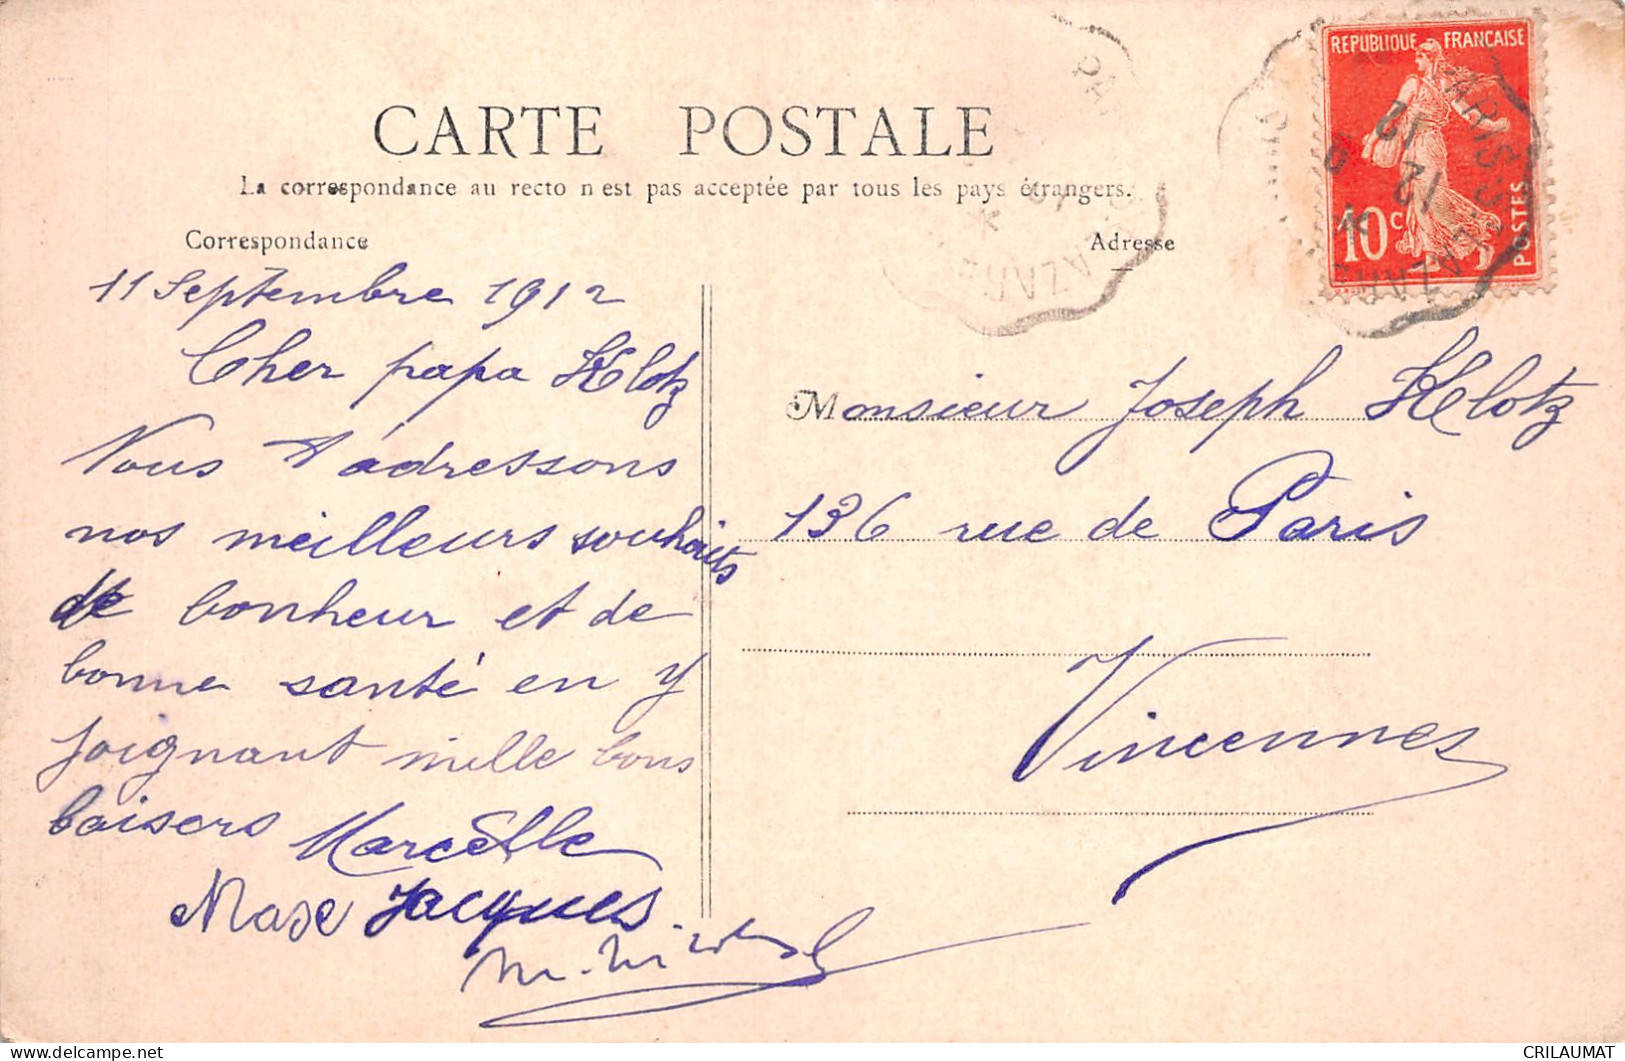 CARTE POSTALE
La correspondance au recto n'est pas acceptée par tous les pays étrangers.
Correspondance
Adresse
REPUBLIQUE FRANÇAISE
10c
POSTES
12
12
11 Septembre 1912
Cher papa Klotz
Nous t'adressons
nos meilleurs souhaits
de bonheur et de
bonne santé en y
joignant mille bons
baisers Marcelle
Max Jacques
Monsieur Joseph Klotz
136 rue de Paris
Vincennes
CRILAUMAT